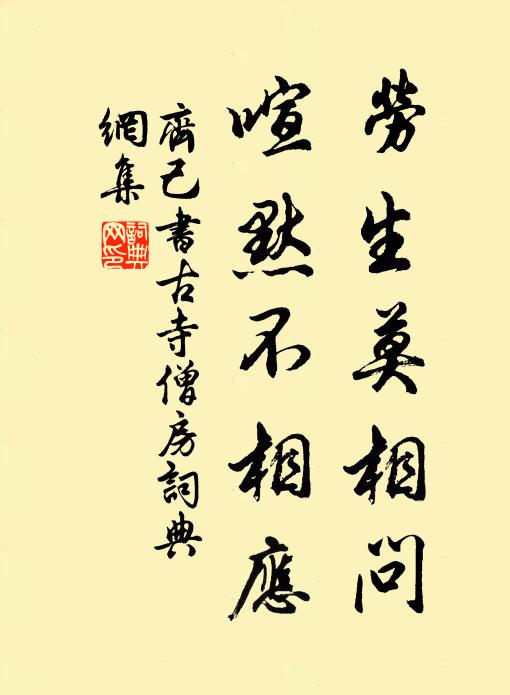 勞生莫相問
喧默不相應
齊己書古寺僧房詞典
網集
詞典
网印